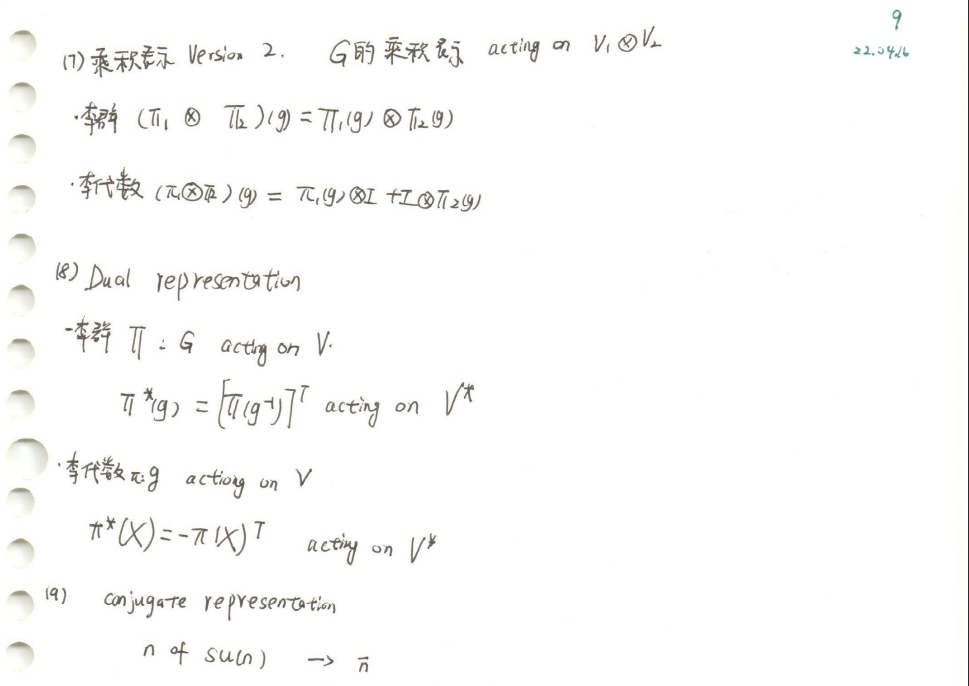 9
22.0426
(7) 乘积表示 Version 2. G的 乘积表示 acting on V₁⊗V₂
·李群 (Π₁ ⊗ Π₂)(g) = Π₁(g) ⊗ Π₂(g)
·李代数 (π₁⊗π₂)(g) = π₁(g)⊗I + I⊗π₂(g)
(8) Dual representation
-李群 Π : G acting on V.
Π*(g) = [Π(g⁻¹)]ᵀ acting on V*
·李代数 π: g actiong on V
π*(X) = -π(X)ᵀ acting on V*
(9) conjugate representation
n of su(n) → n̄